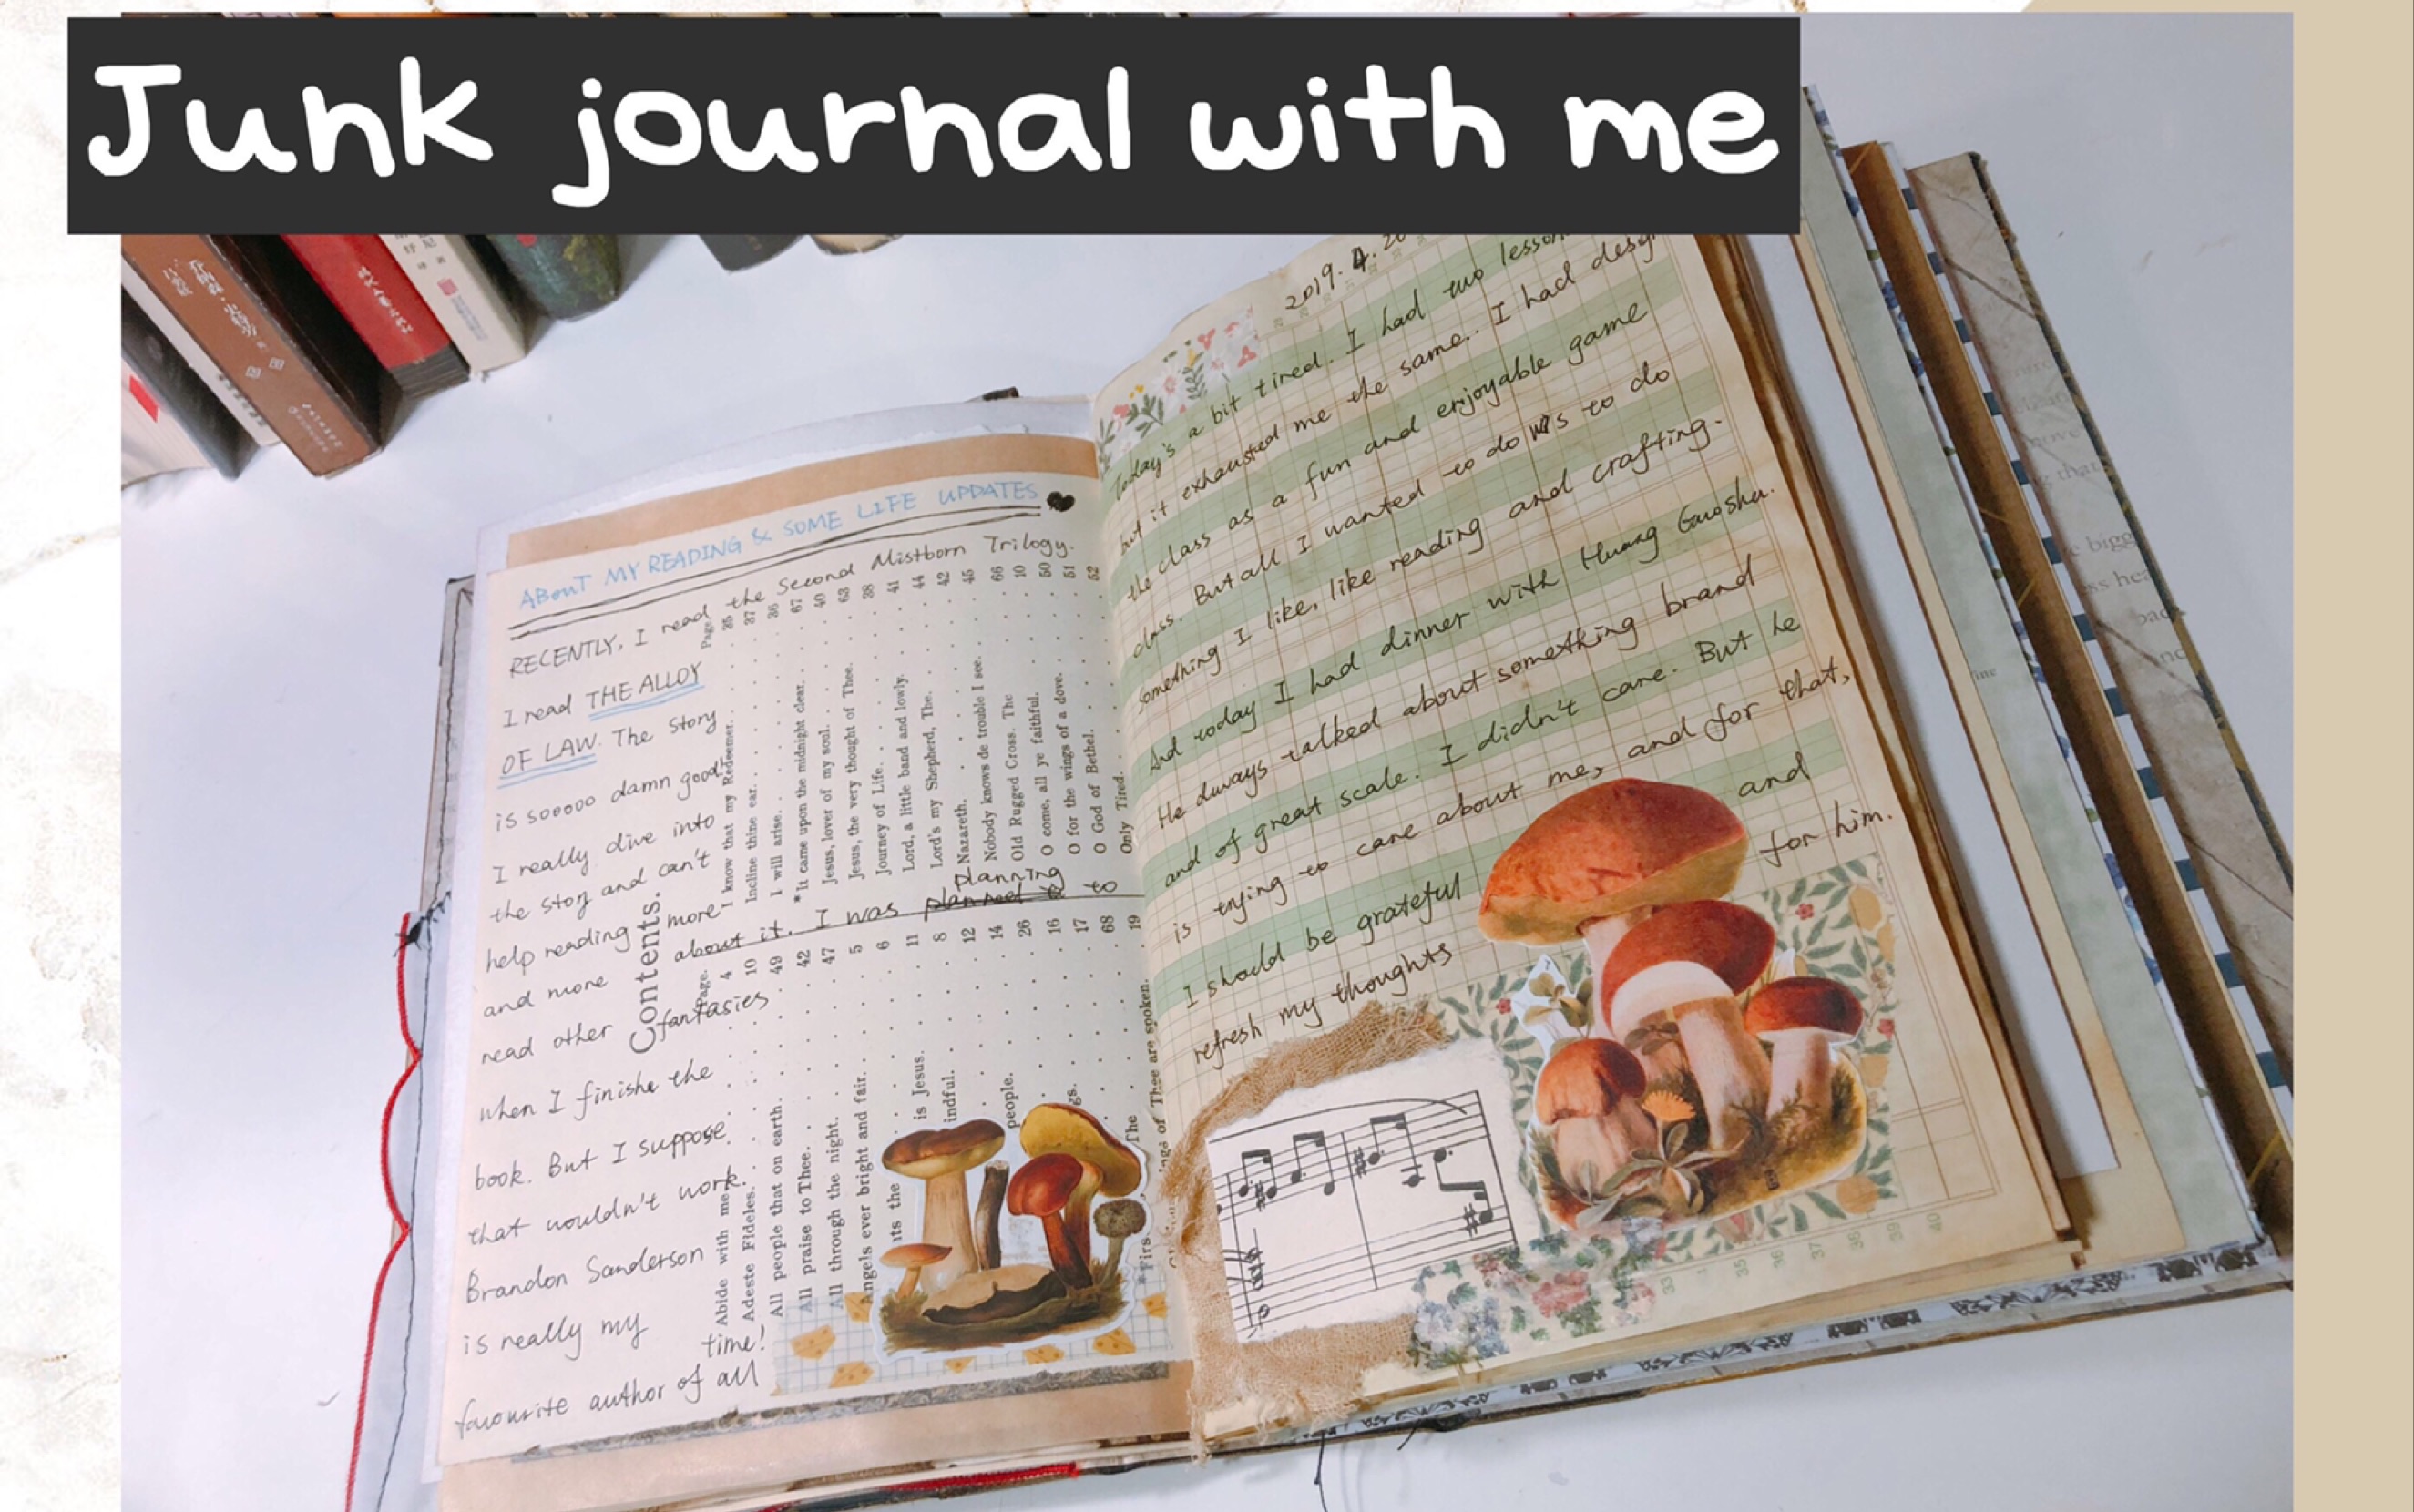 Junk journal with me
ABOUT MY READING & SOME LIFE UPDATES
RECENTLY, I read the Second Mistborn Trilogy.
I read THE ALLOY
OF LAW. The story
is sooooo damn good!
I really dive into
the story and can't
help reading more
and more about it. I was planning to
read other fantasies
when I finishe the
book. But I suppose
that wouldn't work.
Brandon Sanderson
is really my
favourite author of all time!
Contents.
Page.
Abide with me 4
Adeste Fideles. 10
All people that on earth. 49
All praise to Thee. 42
All through the night. 47
Angels ever bright and fair. 5
6
is Jesus. 11
indful. 8
12
people. 14
26
16
gs. 17
68
The 19
Page.
I know that my Redeemer. 35
Incline thine ear. 37
I will arise. 36
*It came upon the midnight clear. 67
Jesus, lover of my soul. 40
Jesus, the very thought of Thee. 63
Journey of Life. 38
Lord, a little band and lowly. 41
Lord's my Shepherd, The. 44
Nazareth. 42
Nobody knows de trouble I see. 45
Old Rugged Cross. The 66
O come, all ye faithful. 10
O for the wings of a dove. 50
O God of Bethel. 51
Only Tired. 52
of Thee are spoken.
2019.4.20
Today's a bit tired. I had two lesson
but it exhausted me the same. I had desig
the class as a fun and enjoyable game
class. But all I wanted to do is to do
something I like, like reading and crafting.
And today I had dinner with Huang Guoshu.
He always talked about something brand
and of great scale. I didn't care. But he
is trying to care about me, and for that,
I should be grateful and
refresh my thoughts for him.
33
35
36
37
38
39
40